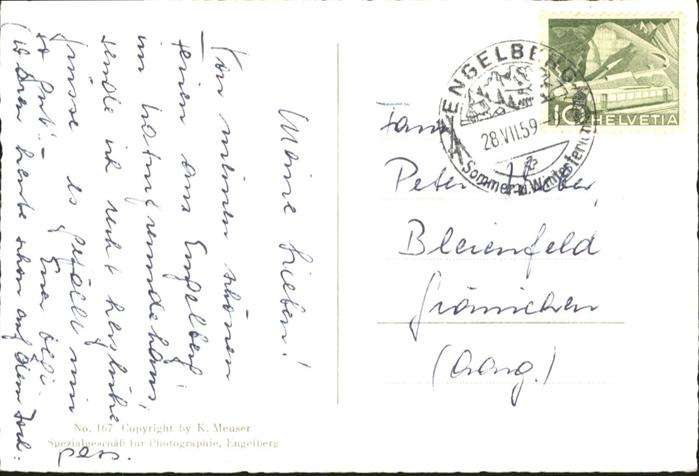 Meine Lieben!
Von meinen schönen
Ferien aus Engelberg
im Naturfreundehaus,
sende ich recht herzliche
Grüsse es gefällt mir
so gut. –
(Wären heute schon auf dem Joch:
pass.
Fam.
Peter
Bleienfeld
Gränichen
(Aarg.)
ENGELBERG
28.VII.59
Sommer u. Winterferien
10
HELVETIA
No. 167 Copyright by K. Meuser
Spezialgeschäft für Photographie, Engelberg